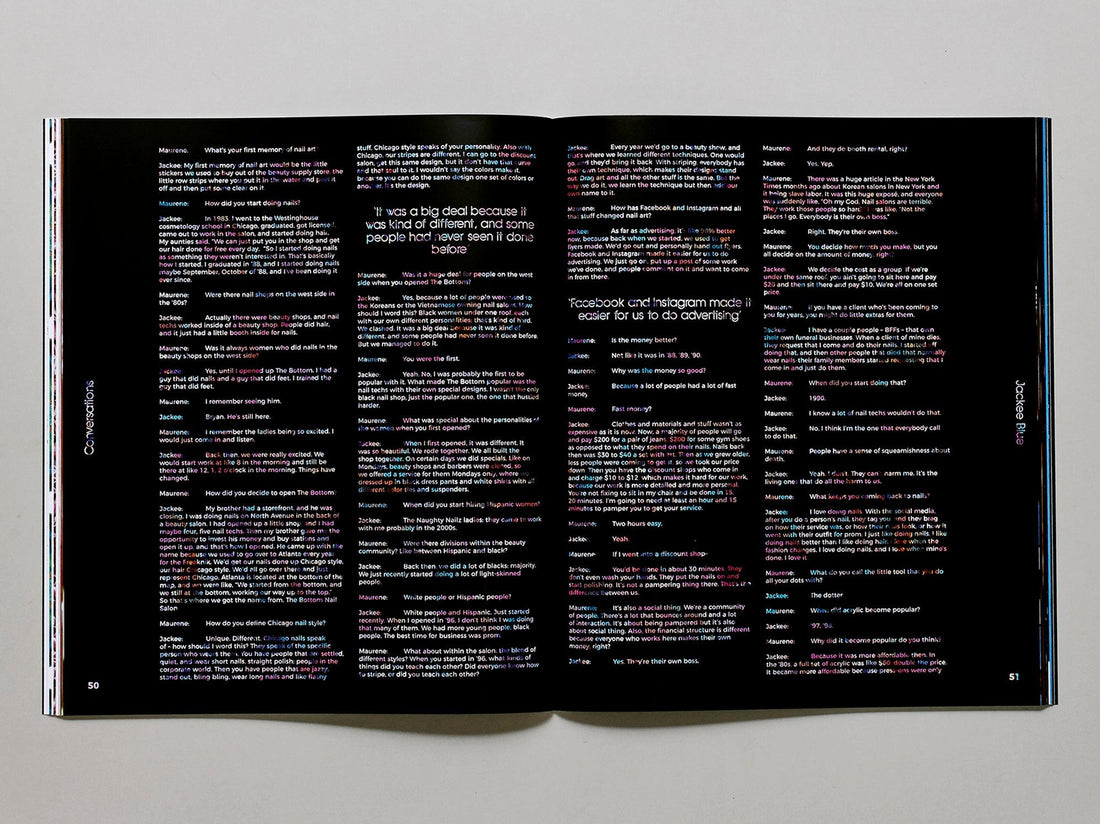 Maurene: What's your first memory of nail art
Jackee: My first memory of nail art would be the little
stickers we used to buy out of the beauty supply store, the
little row strips where you put it in the water and peel it
off and then put some clear on it.
Maurene: How did you start doing nails?
Jackee: In 1983, I went to the Westinghouse
cosmetology school in Chicago, graduated, got licensed,
came out to work in the salon, and started doing hair.
My aunties said, "We can just put you in the shop and get
our hair done for free every day. "So I started doing nails
as something they weren't interested in. That's basically
how I started. I graduated in '88, and I started doing nails
maybe September, October of '88, and I've been doing it
ever since.
Maurene: Were there nail shops on the west side in
the '80s?
Jackee: Actually there were beauty shops, and nail
techs worked inside of a beauty shop. People did hair,
and it just had a little booth inside for nails.
Maurene: Was it always women who did nails in the
beauty shops on the west side?
Jackee: Yes, until I opened up The Bottom. I had a
guy that did nails and a guy that did feet. I trained the
guy that did feet.
Maurene: I remember seeing him.
Jackee: Bryan. He's still here.
Maurene: I remember the ladies being so excited. I
would just come in and listen.
Jackee: Back then, we were really excited. We
would start work at like 8 in the morning and still be
there at like 12, 1, 2 o'clock in the morning. Things have
changed.
Maurene: How did you decide to open The Bottom?
Jackee: My brother had a storefront, and he was
closing. I was doing nails on North Avenue in the back of
a beauty salon. I had opened up a little shop, and I had
maybe four, five nail techs. Then my brother gave me the
opportunity to invest his money and buy stations and
open it up, and that's how I opened. He came up with the
name because we used to go over to Atlanta every year
for the Freaknik. We'd get our nails done up Chicago style,
our hair Chicago style. We'd all go over there and just
represent Chicago. Atlanta is located at the bottom of the
map, and we were like, "We started from the bottom, and
we still at the bottom, working our way up to the top."
So that's where we got the name from. The Bottom Nail
Salon
Maurene: How do you define Chicago nail style?
Jackee: Unique. Different. Chicago nails speak
of - how should I word this? They speak of the specific
person who wears them. You have people that are settled,
quiet, and wear short nails, straight polish; people in the
corporate world. Then you have people that are jazzy,
stand out, bling bling, wear long nails and like flashy
stuff. Chicago style speaks of your personality. Also with
Chicago, our stripes are different. I can go to the discount
salon, get this same design, but it don't have that curve
and that stuff to it. I wouldn't say the colors make it,
because you can do the same design one set of colors or
another. It's the design.
'It was a big deal because it
was kind of different, and some
people had never seen it done
before'
Maurene: Was it a huge deal for people on the west
side when you opened The Bottom?
Jackee: Yes, because a lot of people were used to
the Koreans or the Vietnamese owning nail salons. How
should I word this? Black women under one roof, each
with our own different personalities; that's kind of hard.
We clashed. It was a big deal because it was kind of
different, and some people had never seen it done before.
But we managed to do it.
Maurene: You were the first.
Jackee: Yeah. No, I was probably the first to be
popular with it. What made The Bottom popular was the
nail techs with their own special designs. I wasn't the only
black nail shop, just the popular one, the one that hustled
harder.
Maurene: What was special about the personalities of
the women when you first opened?
Jackee: When I first opened, it was different. It
was so beautiful. We rode together. We all built the
shop together. On certain days we did specials. Like on
Mondays, beauty shops and barbers were closed, so
we offered a service for them Mondays only, where we
dressed up in black dress pants and white shirts with all
different color ties and suspenders.
Maurene: When did you start hiring Hispanic women?
Jackee: The Naughty Nailz ladies; they came to work
with me probably in the 2000s.
Maurene: Were there divisions within the beauty
community? Like between Hispanic and black?
Jackee: Back then we did a lot of blacks; majority.
We just recently started doing a lot of light-skinned
people.
Maurene: White people or Hispanic people?
Jackee: White people and Hispanic. Just started
recently. When I opened in '96, I don't think I was doing
that many of them. We had more young people, black
people. The best time for business was prom.
Maurene: What about within the salon; the blend of
different styles? When you started in '96, what kinds of
things did you teach each other? Did everyone know how
to stripe, or did you teach each other?
50
Conversations
Jackee: Every year we'd go to a beauty show, and
that's where we learned different techniques. One would
go, and they'd bring it back. With striping, everybody has
their own technique, which makes their designs stand
out. Drag art and all the other stuff is the same. But the
way we do it, we learn the technique but then add our
own name to it.
Maurene: How has Facebook and Instagram and all
that stuff changed nail art?
Jackee: As far as advertising, it's like 98% better
now, because back when we started, we used to get
flyers made. We'd go out and personally hand out flyers.
Facebook and Instagram made it easier for us to do
advertising. We just go on, put up a post of some work
we've done, and people comment on it and want to come
in from there.
'Facebook and Instagram made it
easier for us to do advertising'
Maurene: Is the money better?
Jackee: Not like it was in '88, '89, '90.
Maurene: Why was the money so good?
Jackee: Because a lot of people had a lot of fast
money.
Maurene: Fast money?
Jackee: Clothes and materials and stuff wasn't as
expensive as it is now. Now, a majority of people will go
and pay $200 for a pair of jeans, $200 for some gym shoes
as opposed to what they spend on their nails. Nails back
then was $30 to $40 a set with art. Then as we grew older,
less people were coming to get it, so we took our price
down. Then you have the discount shops who come in
and charge $10 to $12, which makes it hard for our work,
because our work is more detailed and more personal.
You're not fixing to sit in my chair and be done in 15,
20 minutes. I'm going to need at least an hour and 15
minutes to pamper you to get your service.
Maurene: Two hours easy.
Jackee: Yeah.
Maurene: If I went into a discount shop-
Jackee: You'd be done in about 30 minutes. They
don't even wash your hands. They put the nails on and
start polishing. It's not a pampering thing there. That's the
difference between us.
Maurene: It's also a social thing. We're a community
of people. There's a lot that bounces around and a lot
of interaction. It's about being pampered but it's also
about social thing. Also, the financial structure is different
because everyone who works here makes their own
money, right?
Jackee: Yes. They're their own boss.
Maurene: And they do booth rental, right?
Jackee: Yes. Yep.
Maurene: There was a huge article in the New York
Times months ago about Korean salons in New York and
it being slave labor. It was this huge exposé, and everyone
was suddenly like, "Oh my God. Nail salons are terrible.
They work those people so hard." I was like, "Not the
places I go. Everybody is their own boss."
Jackee: Right. They're their own boss.
Maurene: You decide how much you make, but you
all decide on the amount of money, right?
Jackee: We decide the cost as a group. If we're
under the same roof, you ain't going to sit here and pay
$25 and then sit there and pay $10. We're all on one set
price.
Maurene: If you have a client who's been coming to
you for years, you might do little extras for them.
Jackee: I have a couple people - BFFs - that own
their own funeral businesses. When a client of mine dies,
they request that I come and do their nails. I started off
doing that, and then other people that died that normally
wear nails their family members started requesting that I
come in and just do them.
Maurene: When did you start doing that?
Jackee: 1990.
Maurene: I know a lot of nail techs wouldn't do that.
Jackee: No, I think I'm the one that everybody call
to do that.
Maurene: People have a sense of squeamishness about
death.
Jackee: Yeah. I don't. They can't harm me. It's the
living one; that do all the harm to us.
Maurene: What keeps you coming back to nails?
Jackee: I love doing nails. With the social media,
after you do a person's nail, they tag you and they brag
on how their service was, or how their nails look, or how it
went with their outfit for prom. I just like doing nails. I like
doing nails better than I like doing hair. I love when the
fashion changes. I love doing nails, and I love when mine's
done. I love it.
Maurene: What do you call the little tool that you do
all your dots with?
Jackee: The dotter
Maurene: When did acrylic become popular?
Jackee: '97, '98.
Maurene: Why did it become popular do you think?
Jackee: Because it was more affordable then. In
the '80s, a full set of acrylic was like $60; double the price.
It became more affordable because press ons were only
51
Jackee Blue